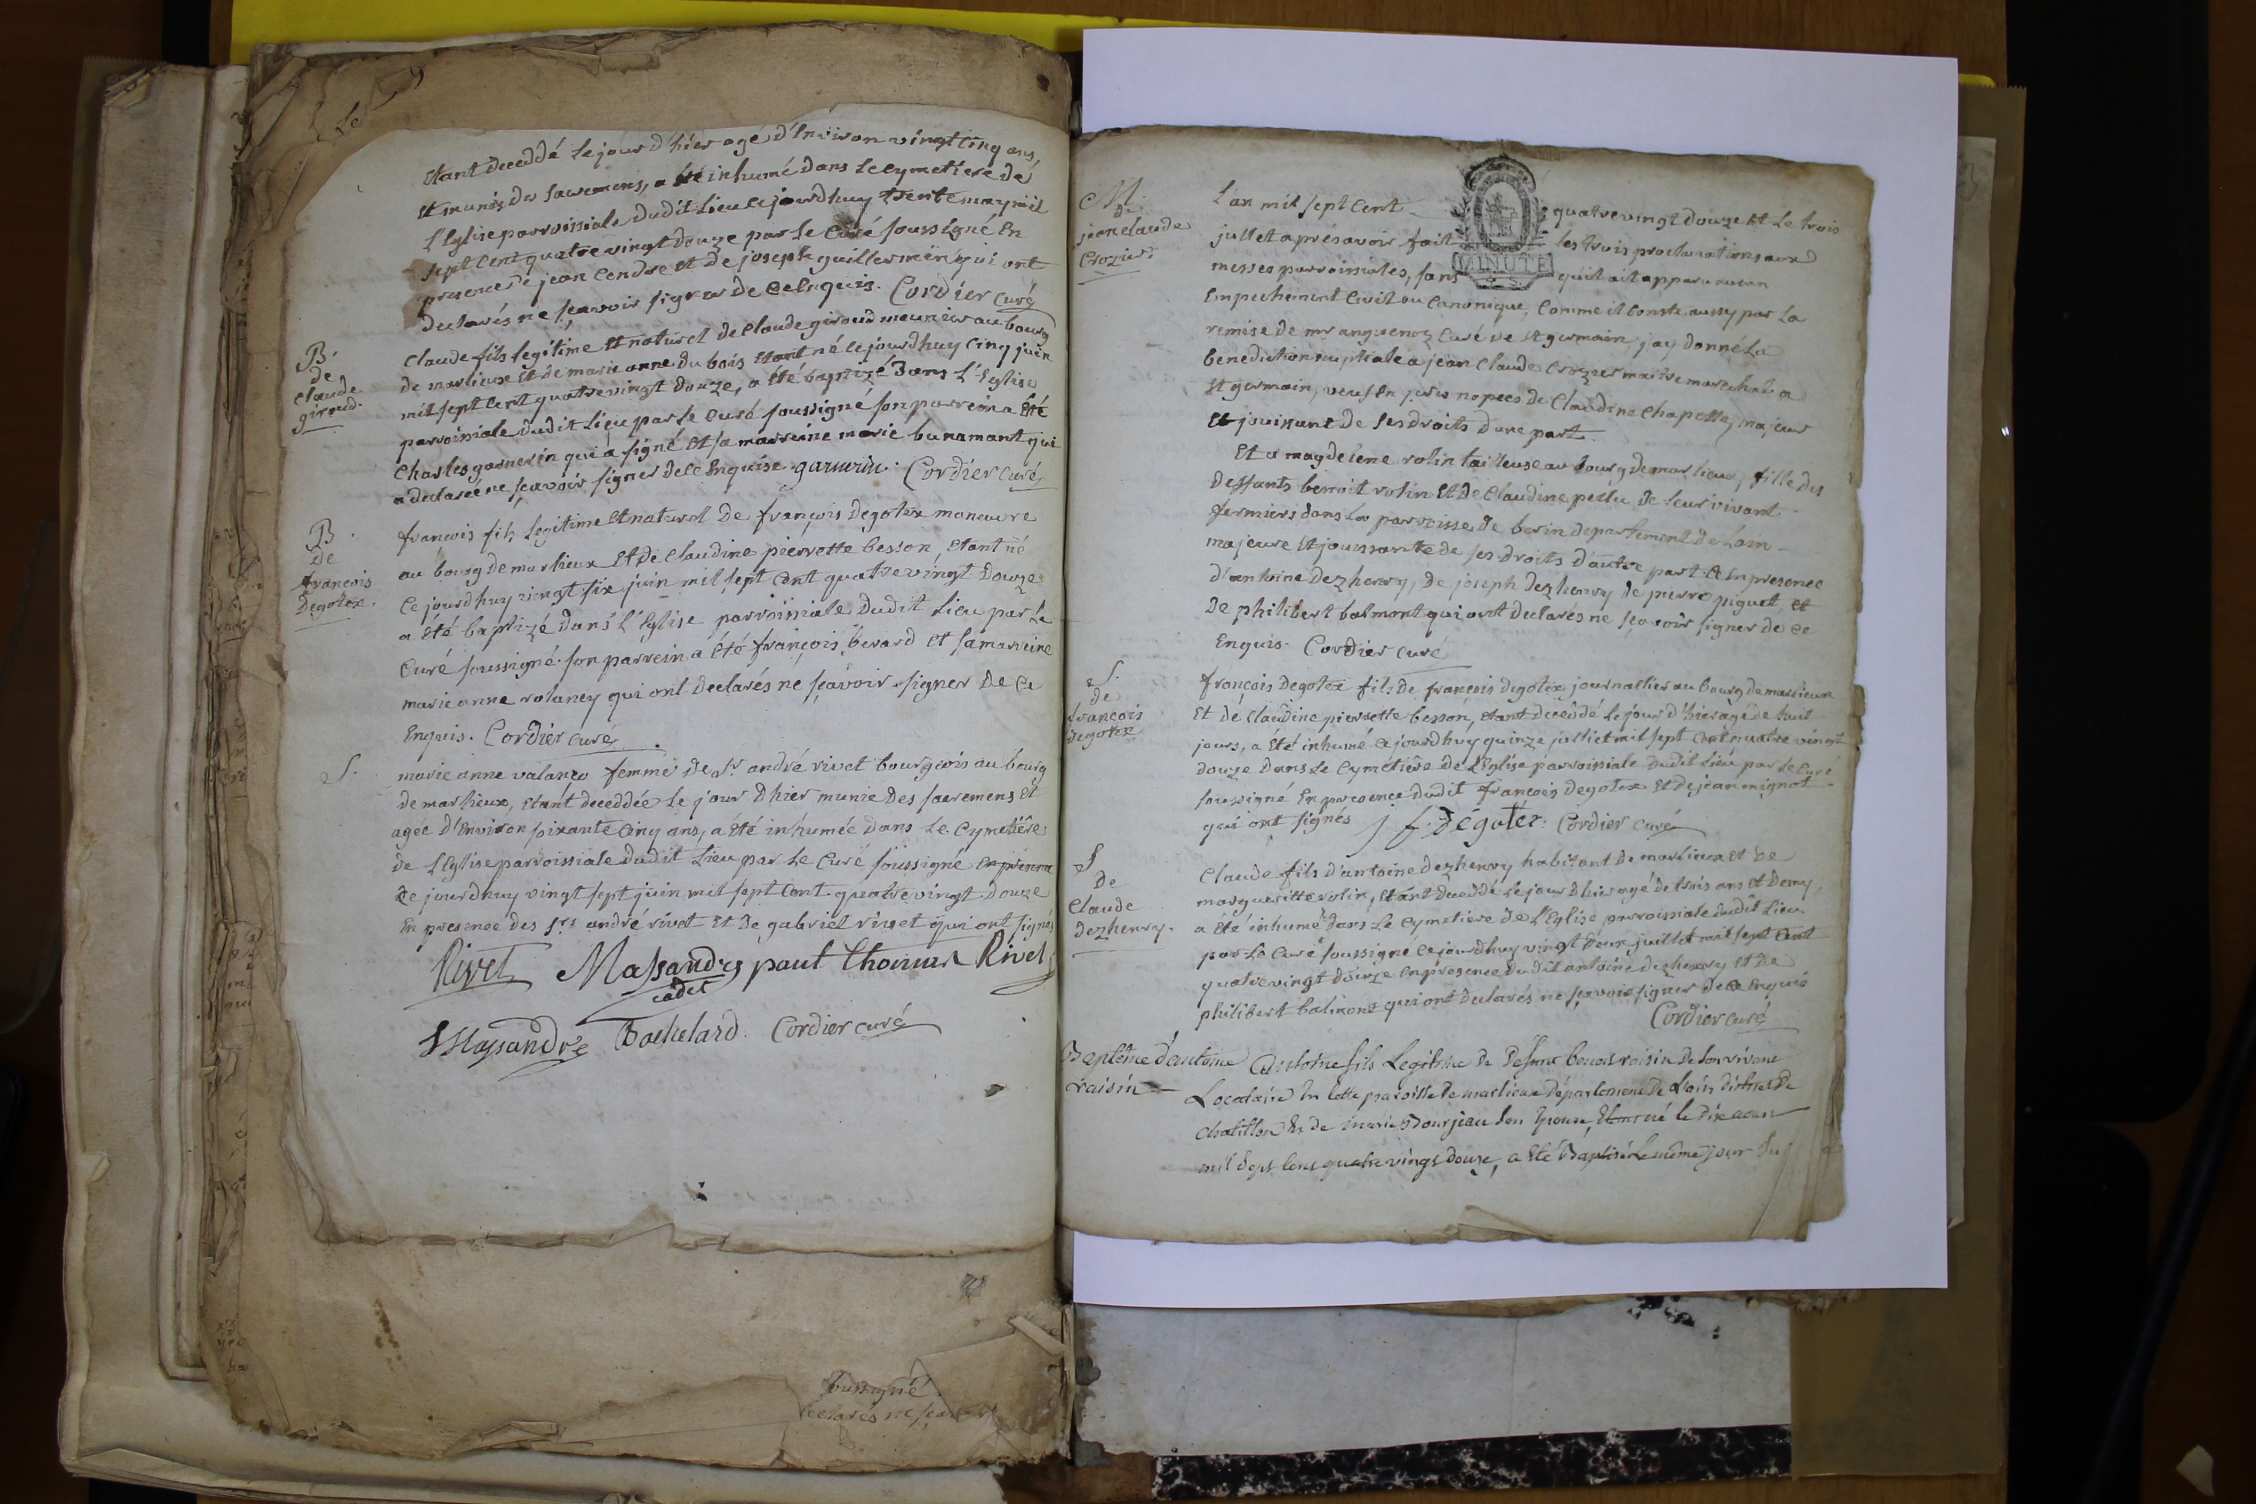 Le
Etant deceddé le jour d'hier agé d'Environ vingt Cinq ans,
Et munis des sacremens, a été inhumé dans le cymetiere de
l'Eglise parroissiale dudit Lieu ce jourdhuy trente may mil
sept cent quatre vingt douze par le Curé soussigné En
presence de jean Cendre et de joseph guillermin qui ont
declarés ne sçavoir signer de ce Enquis. Cordier curé
B.
de
Claude
giroud.
Claude fils legitime Et naturel de Claude giroud meunier au bourg
de marlieux Et de marie anne du bois Etant né cejourdhuy Cinq juin
mil sept cent quatre vingt douze, a été baptizé dans l'Eglise
parroissiale dudit Lieu par le curé soussigné son parrein a Eté
Charles garnerin qui a signé Et sa marreine marie bunamant qui
a declarée ne sçavoir signer de ce Enquise. garnerin. Cordier curé
B.
de
francois
degotex.
francois fils legitime Et naturel de françois degotex maneuvre
au bourg de marlieux Et de Claudine pierrette besson, Etant né
ce jourdhuy vingt six juin mil sept cent quatre vingt douze
a Eté baptizé dans l'Eglise parroissiale dudit Lieu par le
Curé soussigné. son parrein a Eté françois berard Et sa marreine
marie anne rolaney qui ont declarés ne sçavoir signer de ce
Enquis. Cordier curé
S.
marie anne valanço femme de Sr. andré rivet bourgeois au bourg
de marlieux, Etant deceddée le jour d'hier munie des sacremens et
agée d'Environ soixante Cinq ans, a été inhumée dans le Cymetiere
de l'Eglise parroissiale dudit Lieu par le Curé soussigné
ce jourdhuy vingt sept juin mil sept cent quatre vingt douze
En presence des Srs andré rivet Et de gabriel rivet qui ont signés
Rivet Massandré paul thomas Rivet
cadet
Massandré Bachelard. Cordier curé
soussigné
declarés ne sçav
M.
de
jean claude
Crozier
MINUTE
L'an mil sept cent quatre vingt douze Et le trois
juillet aprés avoir fait les trois proclamations aux
messes parroissiales, sans qu'il ait apparu aucun
Empechement Civil ou Canonique, Comme il Conste aussy par la
remise de mr anguenoz Curé de st germain j'ay donné La
benediction nuptiale a jean Claude Crozier maitre marechal a
st germain, veuf En noces de Claudine Chapelle, majeur
et jouissant de ses droits d'une part.
Et a magdeleine rolin tailleuse au bourg de marlieux, fille des
deffants benoit rolin Et de Claudine pellu de leur vivant
fermiers dans la parroisse de departement de Lain
majeure Et jouissante de ses droits d'autre part. Et En presence
d'antoine dezhenry, de joseph dezhenry de pierre piquet, et
de philibert balmont qui ont declarés ne sçavoir signer de ce
Enquis. Cordier curé
S.
de
francois
degotex
françois degotex fils de francois degotex journallier au bourg de marlieux
Et de Claudine pierrette besson, Etant deceddé le jour d'hier agé de huit
jours, a été inhumé ce jourdhuy quinze juillet mil sept cent quatre vingt
douze dans le Cymetiere de l'Eglise parroissiale dudit Lieu par le curé
soussigné En presence dudit francois degotex Et de jean mignot
qui ont signés j f. Dégotéx. Cordier curé
S
de
Claude
dezhenry.
Claude fils d'antoine dezhenry habitant de marlieux et de
margueritte rolin, Etant deceddé le jour d'hier agé de trois ans Et demy,
a été inhumé dans le Cymetiere de l'Eglise parroissiale dudit Lieu
par le Curé soussigné ce jourdhuy vingt deux juillet mil sept cent
quatre vingt douze En presence dudit antoine dezhenry et de
philibert balmont qui ont declarés ne sçavoir signer de ce Enquis
Cordier curé
Baptême d'antoine
raisin
Antoine fils Legitime de Defunt benoit raisin de son vivant
Locataire En cette paroisse de marlieux département de Lain district de
chatillon Et de marie Bourjeau son Epouse, Etant né le dix aoust
mil sept cent quatre vingt douze, a été Baptisé le même jour du